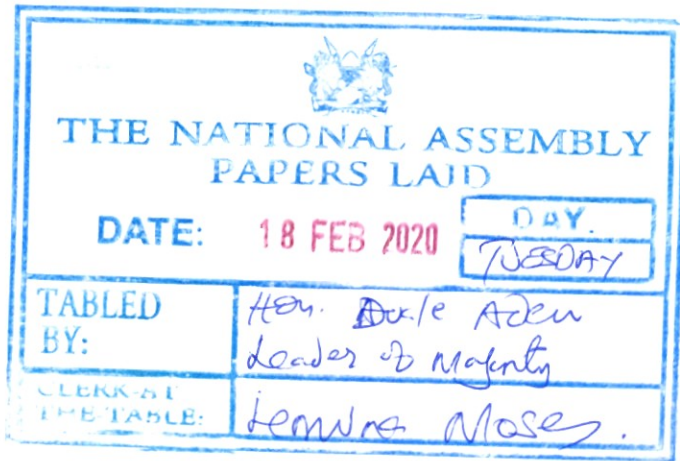 THE NATIONAL ASSEMBLY
PAPERS LAID
DATE: 18 FEB 2020
DAY.
TUESDAY
TABLED BY:
Hon. Aden
Leader of Majority
CLERK-AT THE-TABLE:
Moses.